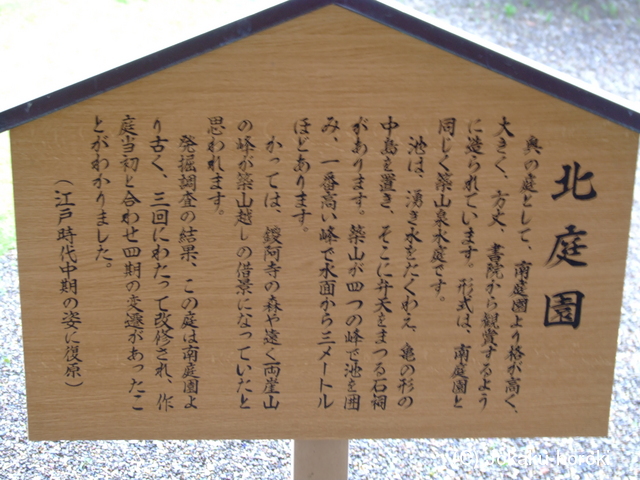 北庭園
奥の庭として、南庭園より格が高く、
大きく、方丈、書院から観賞するよう
に造られています。形式は、南庭園と
同じく築山泉水庭です。
池は、湧き水をたくわえ、亀の形の
中島を置き、そこに弁天をまつる石祠
があります。築山が四つの峰で池を囲
み、一番高い峰で水面から三メートル
ほどあります。
かつては、鑁阿寺の森や遠く両崖山
の峰が築山越しの借景になっていたと
思われます。
発掘調査の結果、この庭は南庭園よ
り古く、三回にわたって改修され、作
庭当初と合わせ四期の変遷があったこ
とがわかりました。
（江戸時代中期の姿に復原）